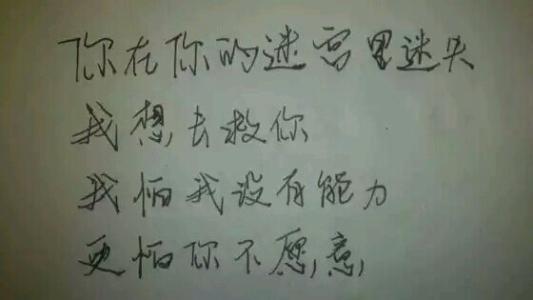 你在你的迷宫里迷失
我想去救你
我怕我没有能力
更怕你不愿意